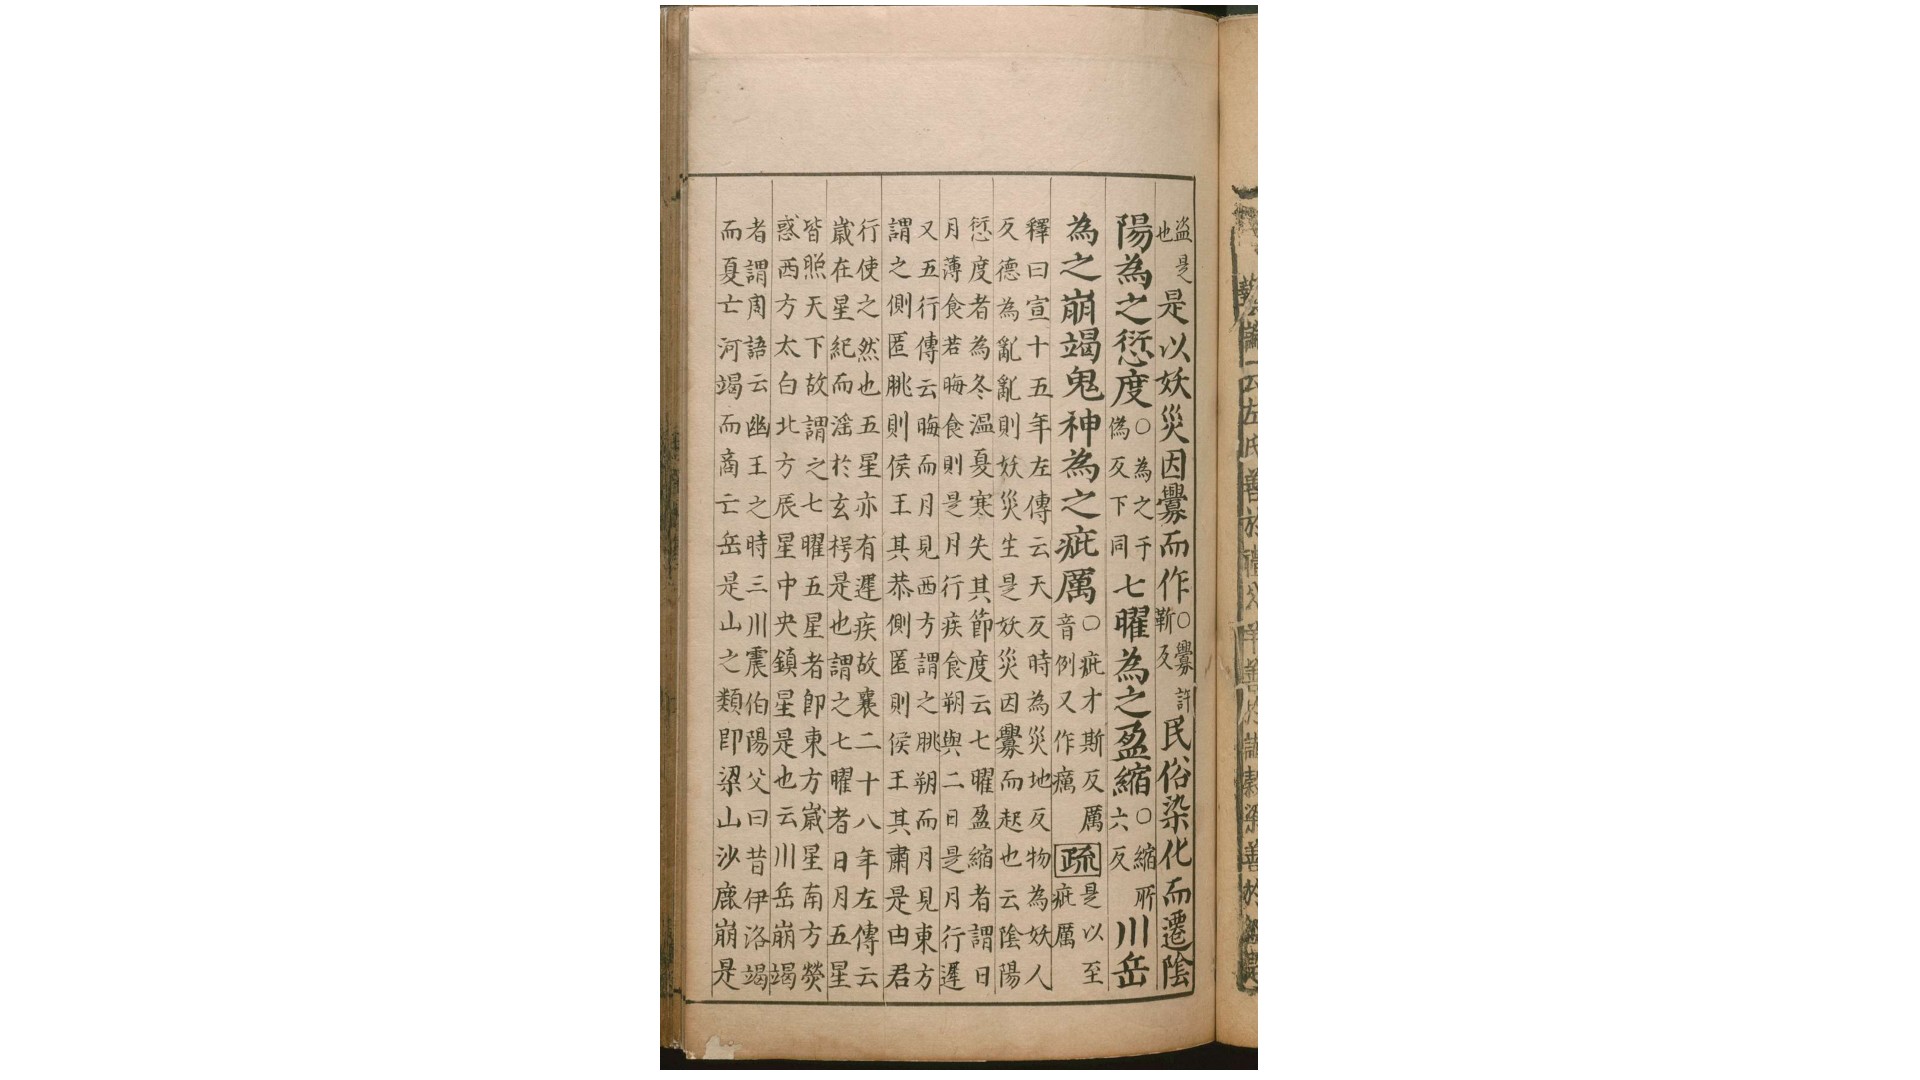 盜是也是以妖災因釁而作○釁許靳反民俗染化而遷陰
陽為之愆度○為之于偽反下同七曜為之盈縮○縮所六反川岳
為之崩竭鬼神為之疵厲○疵才斯反厲音例又作癘疏是以至疵厲
釋曰宣十五年左傳云天反時為災地反物為妖人
反德為亂亂則妖災生是妖災因釁而起也云陰陽
愆度者為冬溫夏寒失其節度云七曜盈縮者謂日
月薄食若晦食則是月行疾食朔與二日是月行遲
又五行傳云晦而月見西方謂之朓朔而月見東方
謂之側匿朓則侯王其恭側匿則侯王其肅是由君
行使之然也五星亦有遲疾故襄二十八年左傳云
歲在星紀而淫於玄枵是也謂之七曜者日月五星
皆照天下故謂之七曜五星者即東方歲星南方熒
惑西方太白北方辰星中央鎮星是也云川岳崩竭
者謂周語云幽王之時三川震伯陽父曰昔伊洛竭
而夏亡河竭而商亡岳是山之類即梁山沙鹿崩是